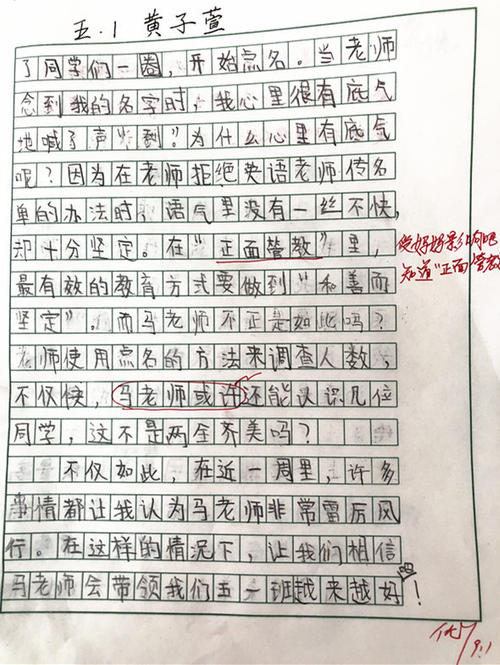 五.1 黄子萱
了同学们一圈，开始点名。当老师
念到我的名字时，我心里很有底气
地喊了声“到”。为什么心里有底气
呢？因为在老师拒绝英语老师传名
单的办法时，语气里没有一丝不快，
却十分坚定。在“正面管教”里，
最有效的教育方式要做到“和善而
坚定”。而马老师不正是如此吗？
老师使用点名的方法来调查人数，
不仅快，马老师或许还能认识几位
同学，这不是两全齐美吗？
不仅如此，在近一周里，许多
事情都让我认为马老师非常雷厉风
行。在这样的情况下，让我们相信
马老师会带领我们五一班越来越好吧！
知道“正面管教
优
9.1